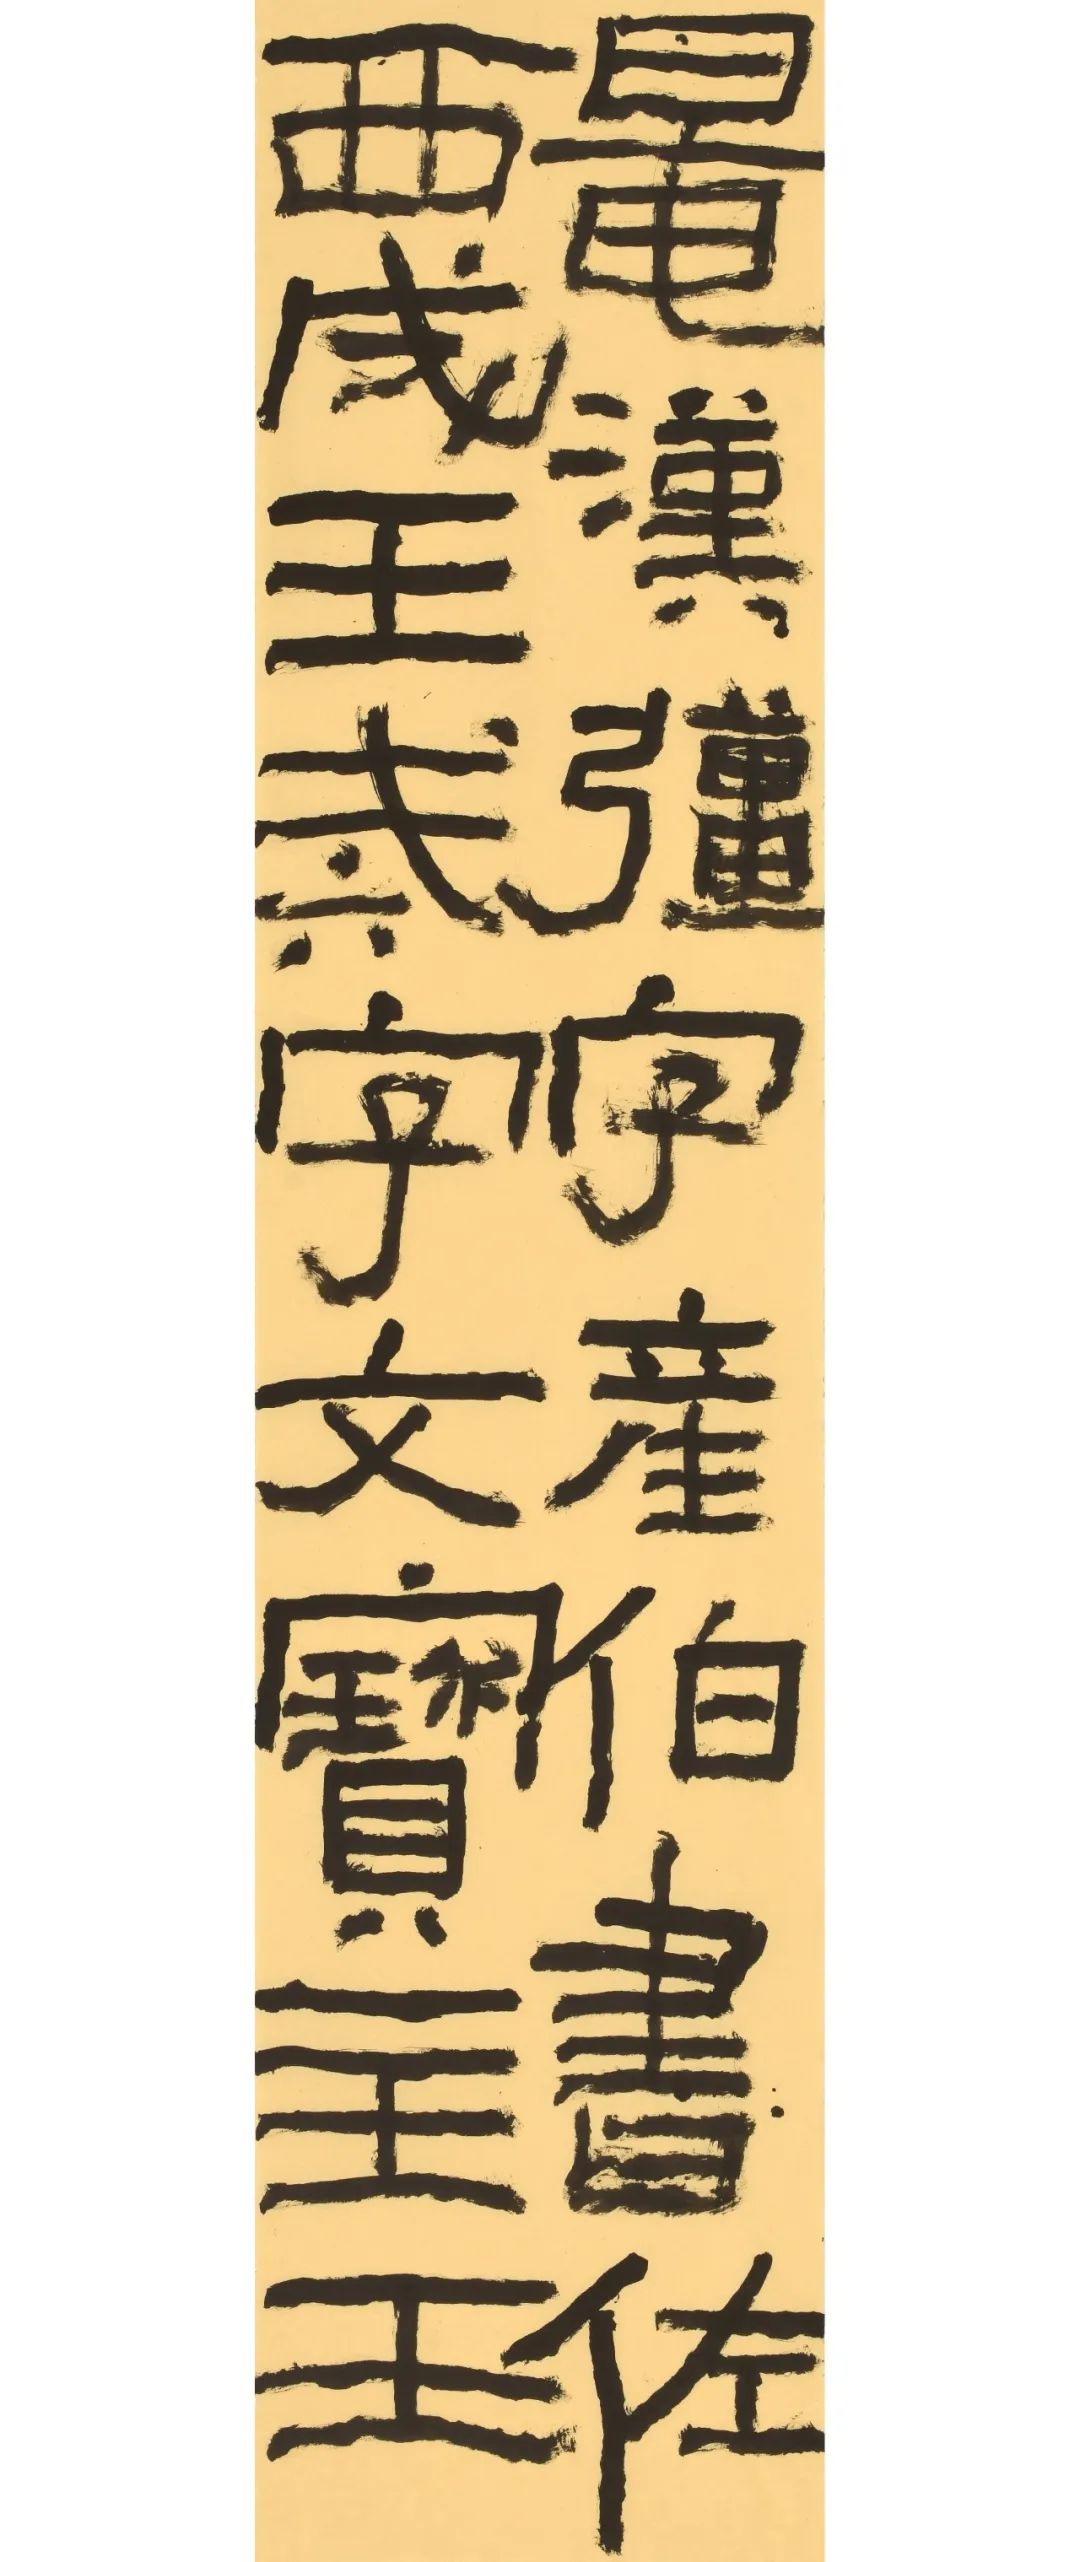 鼂漢彊字產伯書佐
西成王戒字文寶主王